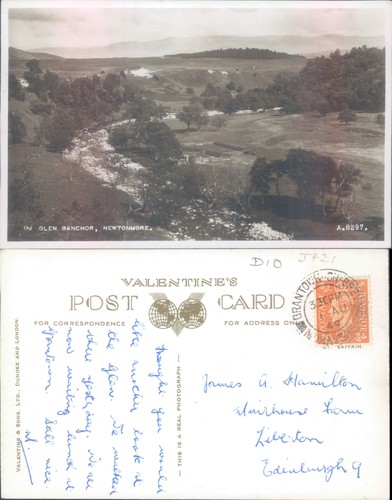 IN GLEN BANCHOR, NEWTONMORE.
A.8297.
D10
JF21
VALENTINE'S
POST CARD
FOR CORRESPONDENCE
FOR ADDRESS ON
VALENTINE & SONS, LTD., DUNDEE AND LONDON.
— THIS IS A REAL PHOTOGRAPH —
GRANTOWN-ON-SPEY
3.30PM
AU
BRITAIN
Thought you would
like another look at
the Glen. We walked
there yesterday. We are
now waiting lunch at
Grantown.
James A. Hamilton
Muirhouse Farm
Liberton
Edinburgh 9